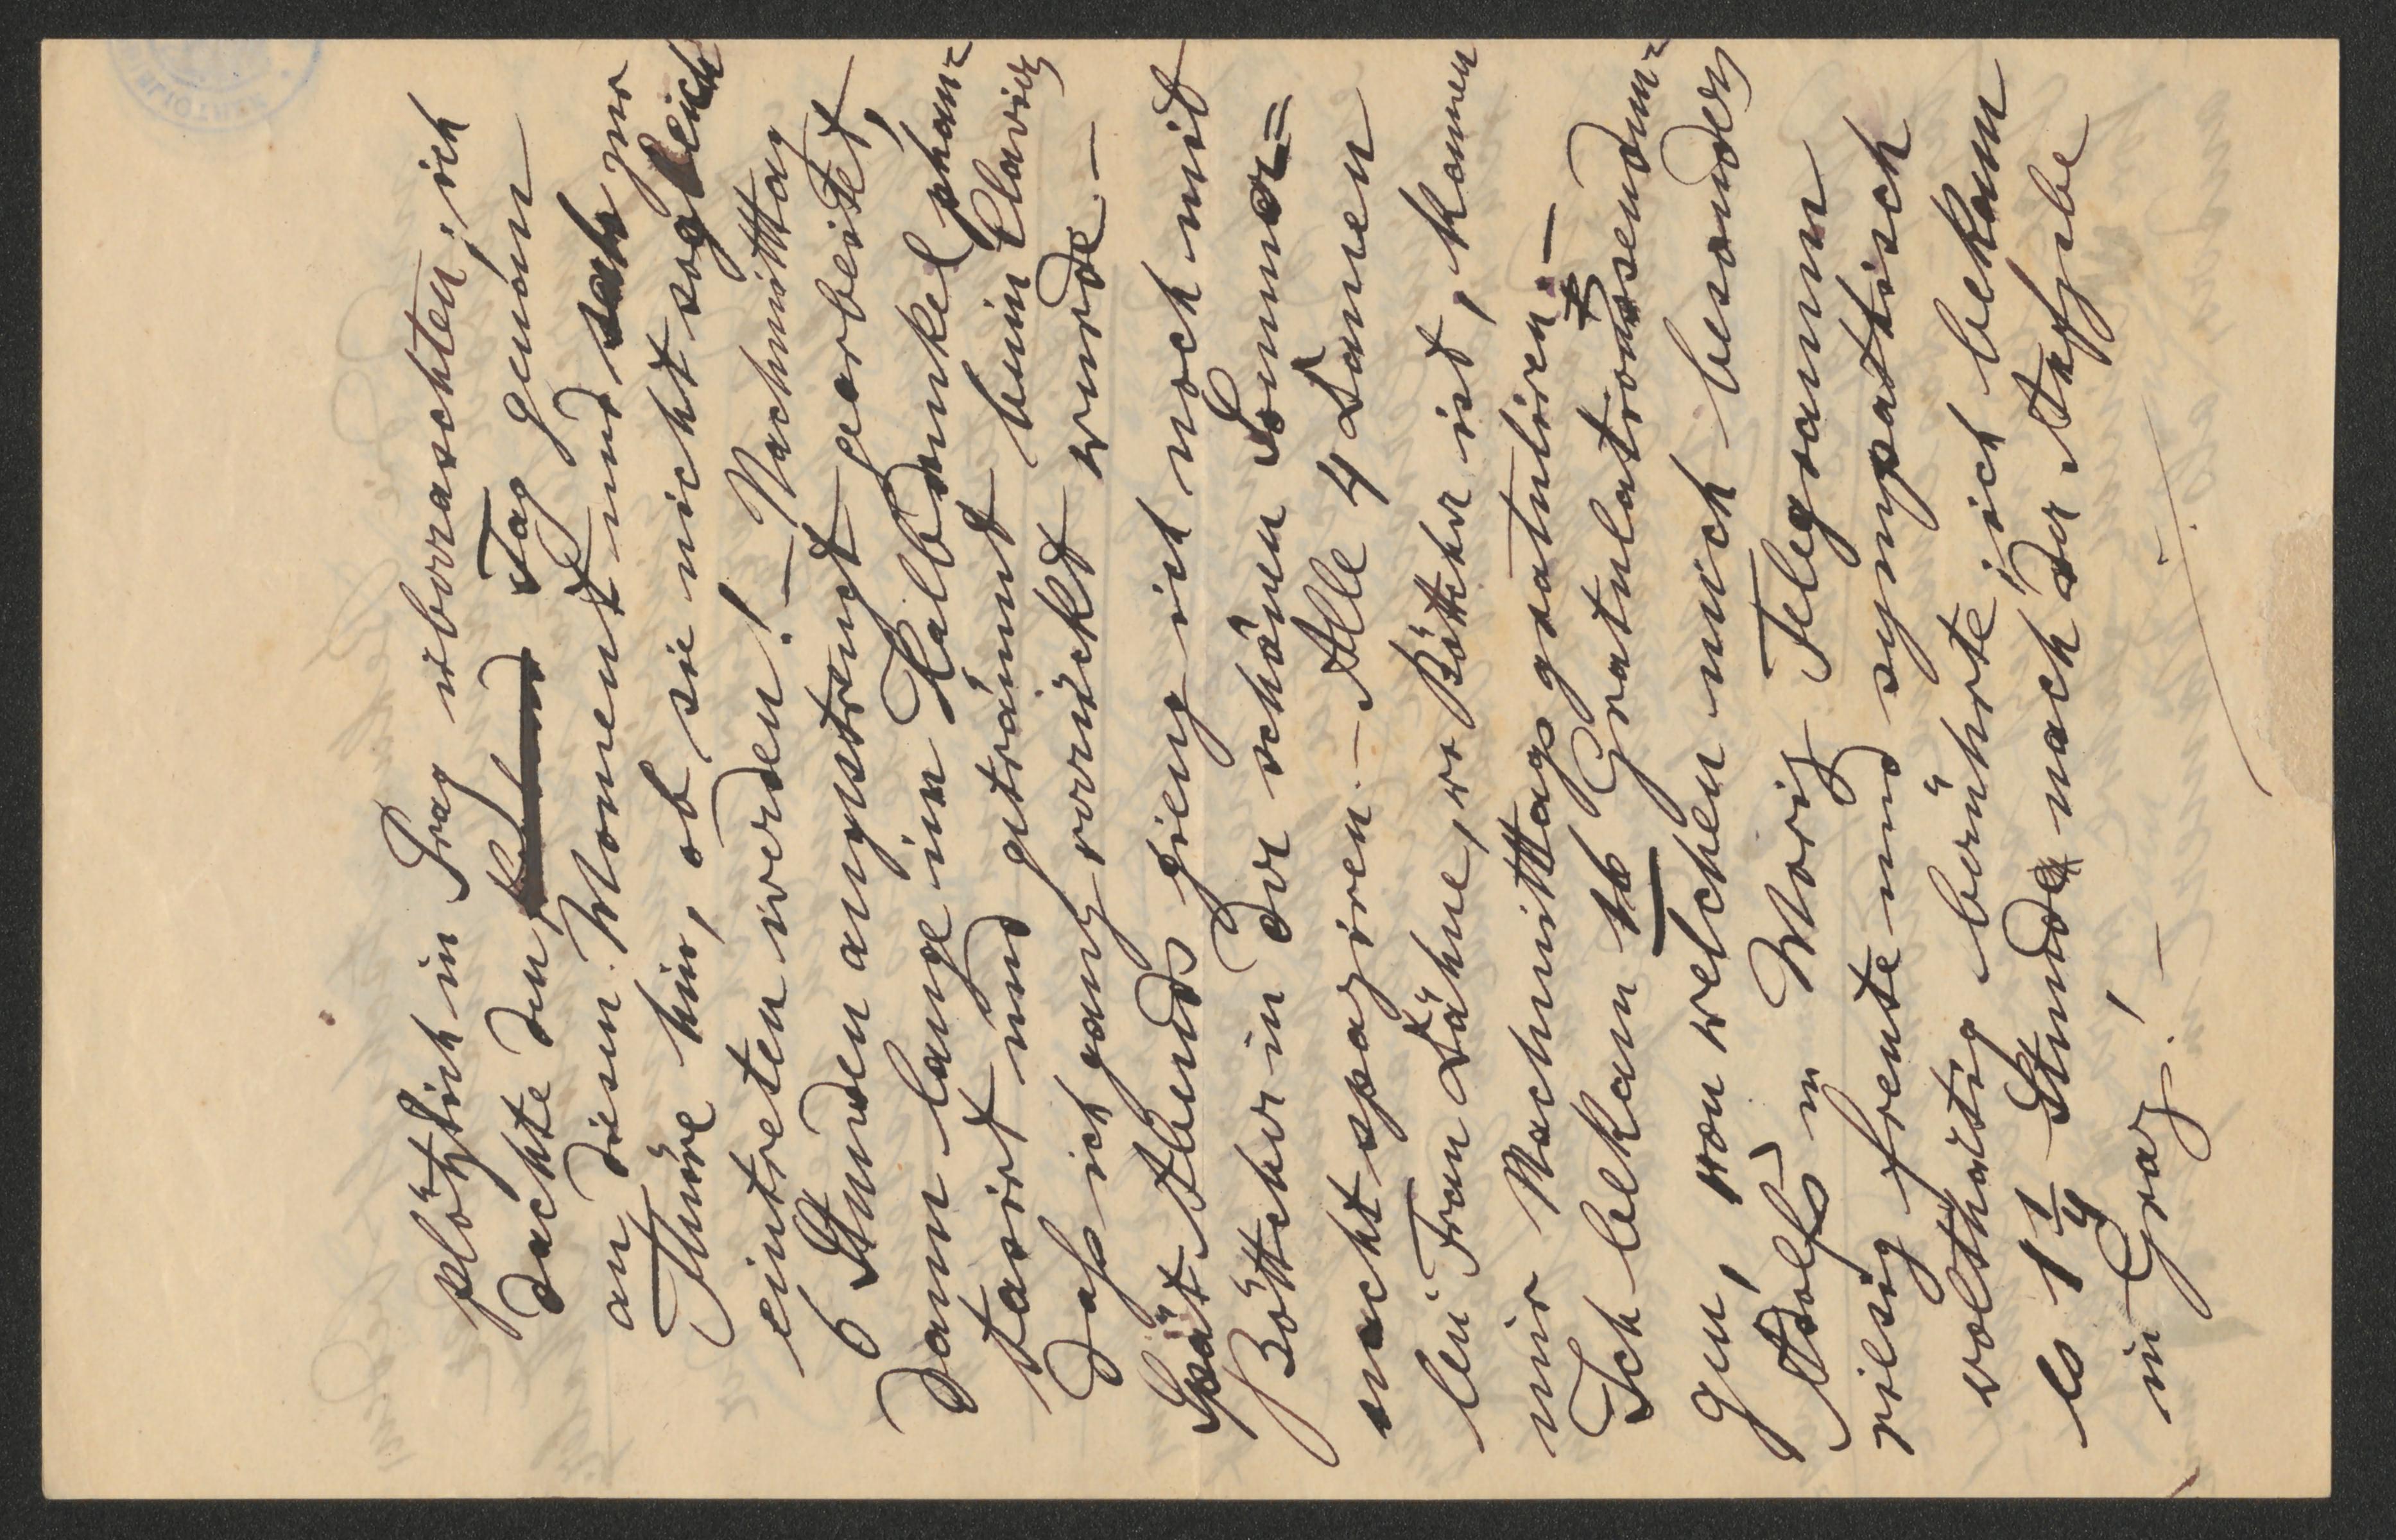 plötzlich in Prag überraschten; ich
dachte den Tag genau
an diesen Moment und sah zur
Thüre hin, ob sie nicht sogleich
eintreten werden! – Nachmittag
6 Stunden angestrengt gearbeitet,
dann lange im Halbdunkel phan=
tasirt und geträumt beim Clavier
daß ich ganz verrückt wurde. –
Spät Abends gieng ich noch mit
Bötticher in der schönen Sommer=
nacht spaziren. – Alle 4 Damen
bei Frau Dähne, wo Bötticher ist, kamen
mir Nachmittags gratuliren. –
Ich bekam 16 Gratulationssendun=
gen, von welchen mich besonders
Adolfs u Moriz Telegramm
riesig freute und sympathisch
wolthätig berührte; ich bekam
es 1 1/4 Stunde nach der Aufgabe
in Graz! –